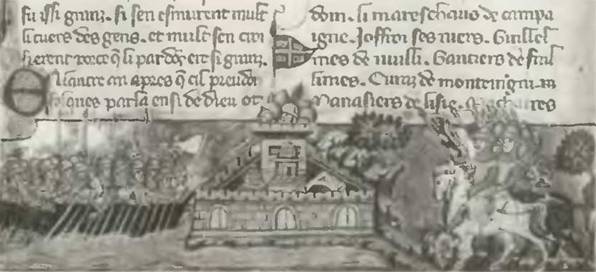 fu issi granz. si sen esmurent mult
li cuers des gens. et mult sen croi
sierent porce q̃ li pardõs ere si granz.
En lautre an apres q̃ cil preudom
folques parla ensi de dieu ot
dom. li mareschaus de campa
igne. Joffroi ses niers. Guillel
mes de nuilli. Gautiers de fuil
limes. Euraz de monteingni.
Manasiers de lisle. Machaires